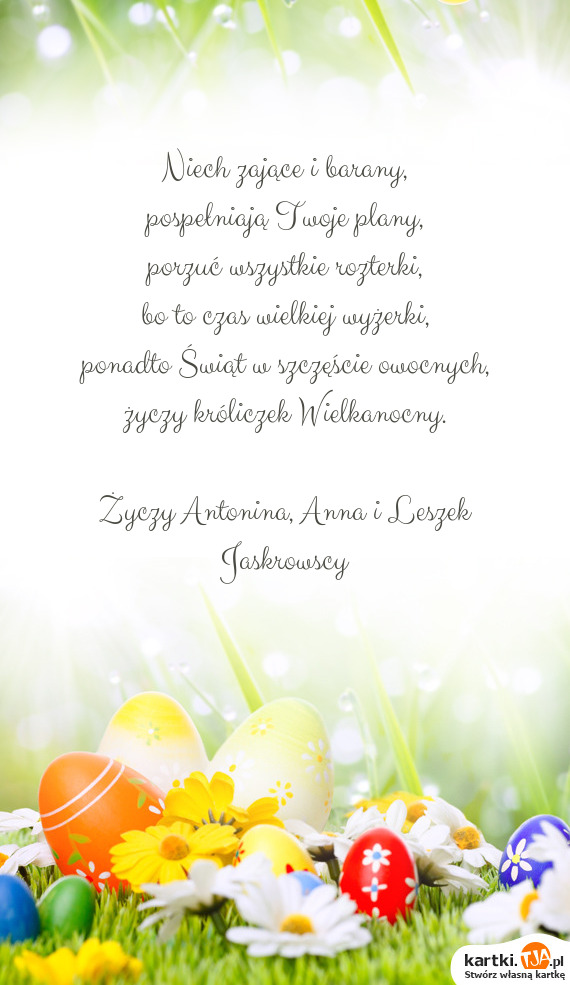 Niech zające i barany,
pospełniają Twoje plany,
porzuć wszystkie rozterki,
bo to czas wielkiej wyżerki,
ponadto Świąt w szczęście owocnych,
życzy króliczek Wielkanocny.
Życzy Antonina, Anna i Leszek
Jaskrowscy
kartki.TJA.pl
Stwórz własną kartkę